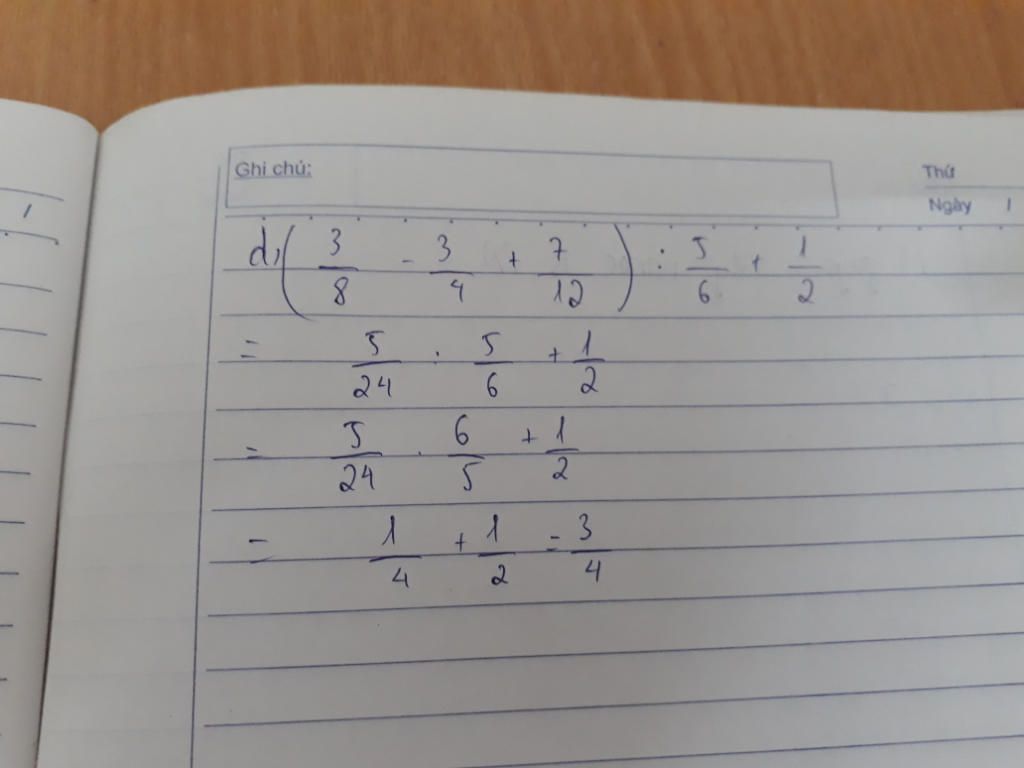 Ghi chú:
Thứ
Ngày /
d, (3/8 - 3/4 + 7/12) : 5/6 + 1/2
= 5/24 : 5/6 + 1/2
= 5/24 . 6/5 + 1/2
= 1/4 + 1/2 = 3/4